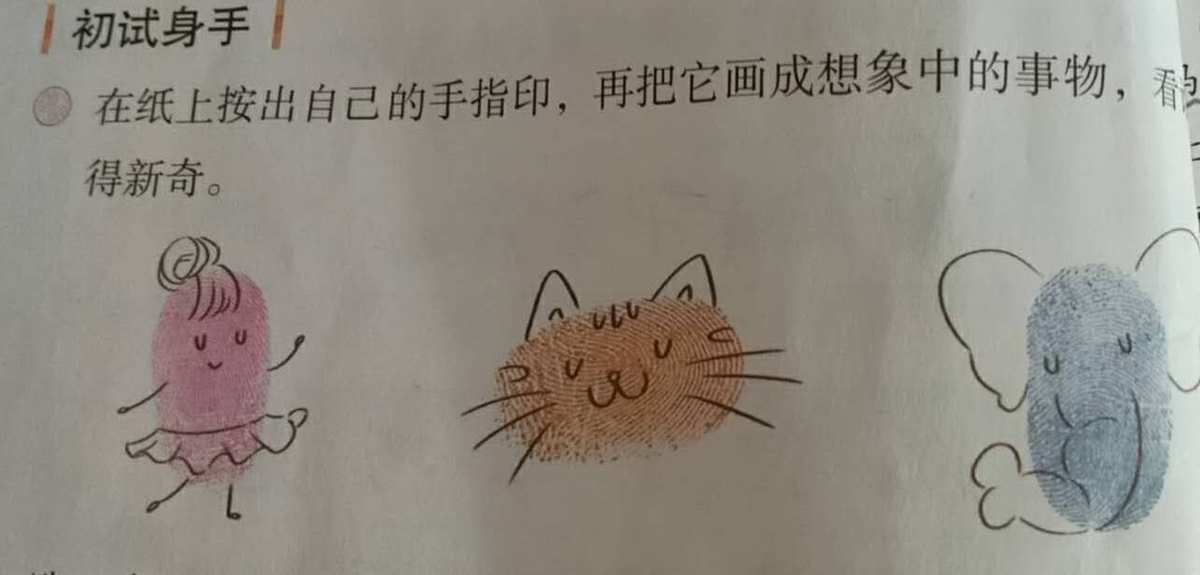 初试身手
在纸上按出自己的手指印，再把它画成想象中的事物，看
得新奇。